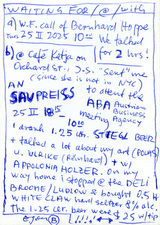 WAITING FOR / @ / with
a) W.F. call of Bernhard Hoppe
25 II 2025 10 We talked
for 2 hrs!
b) @ Café Katja on
Orchard ST. J.S. "sent" me
(since she is not in NYC)
to attend the
AN SAUPREISS ABA Austrian
Business
25 II 18 meeting Agency
I drank 1.25 Ltr. STIEGL BEER
+ talked a lot about my art (
w. ULRIKE (Reinhard) + w/
APPOLONIA HOLZER. on my
way home I stopped @ the DELI
BROOME/LUDLOW & bought 2,5 H
WHITE CLAW hard seltzer 8% alc.
The 1.25 Ltr. beer were $25 w/tip